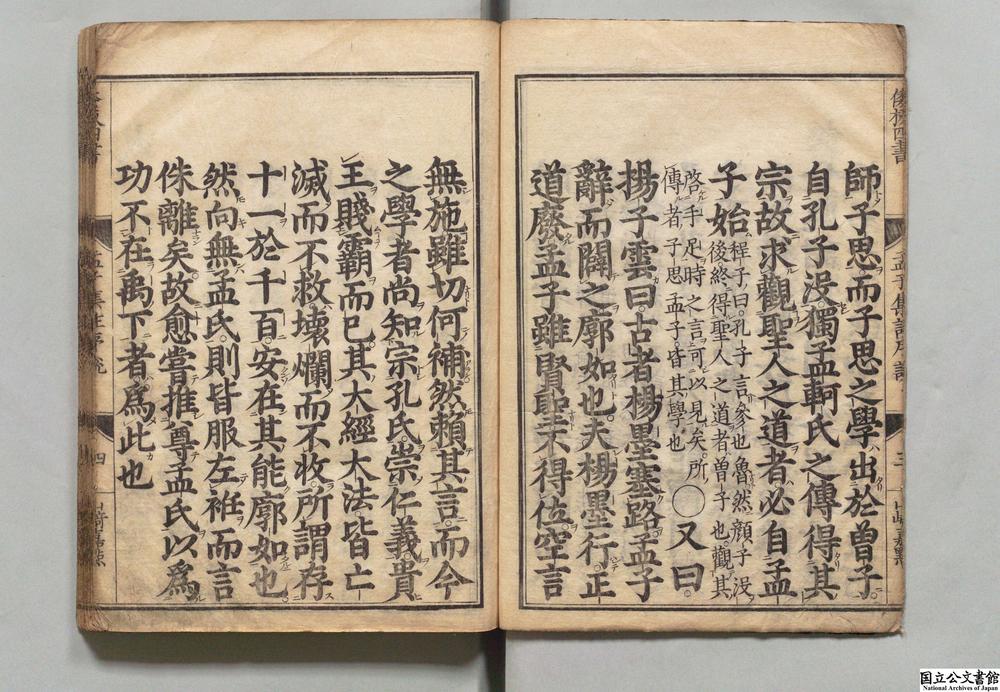 師子思而子思之學出於曾子
自孔子沒獨孟軻氏之傳得其
宗故求觀聖人之道者必自孟
子始
程子曰孔子言參也魯然顏子沒
後終得聖人之道者曾子也觀其
啓手足時之言可以見矣所
傳者子思孟子皆其學也
○又曰
揚子雲曰古者楊墨塞路孟子
辭而闢之廓如也夫楊墨行正
道廢孟子雖賢聖不得位空言
無施雖切何補然賴其言而今
之學者尚知宗孔氏崇仁義貴
王賤霸而已其大經大法皆亡
滅而不救壞爛而不收所謂存
十一於千百安在其能廓如也
然向無孟氏則皆服左衽而言
侏離矣故愈嘗推尊孟氏以爲
功不在禹下者爲此也
四
国立公文書館
National Archives of Japan